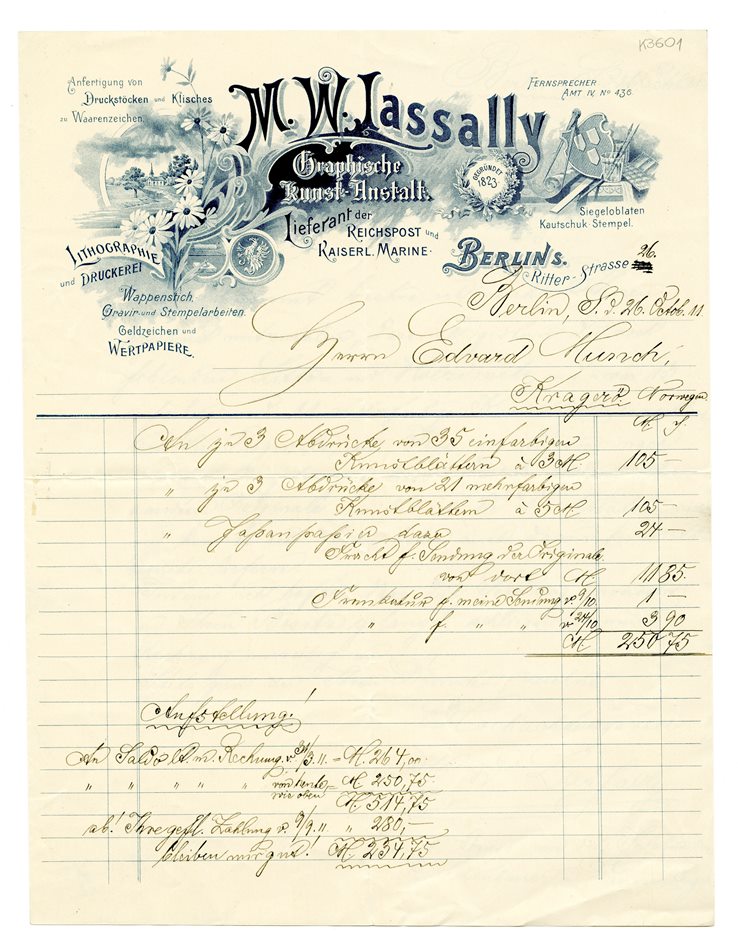 K3601
Anfertigung von
Druckstöcken und Klisches
zu Waarenzeichen.
M. W. Lassally
Graphische
Kunst-Anstalt.
FERNSPRECHER
AMT IV. No 436.
GEGRÜNDET
1823
Lieferant der
REICHSPOST und
KAISERL. MARINE.
Siegeloblaten
Kautschuk-Stempel.
LITHOGRAPHIE
und DRUCKEREI
Wappenstich,
Gravir-und Stempelarbeiten.
Geldzeichen und
WERTPAPIERE.
BERLIN S.
Ritter-Strasse 26.
Berlin, S. d. 26. Octob. 11.
Herrn Edvard Munch,
Kragerö. Norwegen
M. ₰
An je 3 Abdrücke von 35 einfarbigen
Kunstblättern à 3 M 105 —
„ je 3 Abdrücke von 21 mehrfarbigen
Kunstblättern à 5 M 105 —
„ Japanpapier dazu 24 —
Fracht f. Sendung der Originale
von dort M. 11 85.
Frankatur f. meine Sendung v. 9/10 1 —
„ f. „ „ v 24/10 3 90
M 250 75
Aufstellung!
An Saldo lt. m. Rechnung v. 31/3. 11. = M. 264,00
„ „ „ „ „ von heute, wie oben M 250,75
M. 514,75
ab! Ihre gefl. Zahlung v. 9/9. 11 „ 280,—
bleiben mir gut! M 234,75